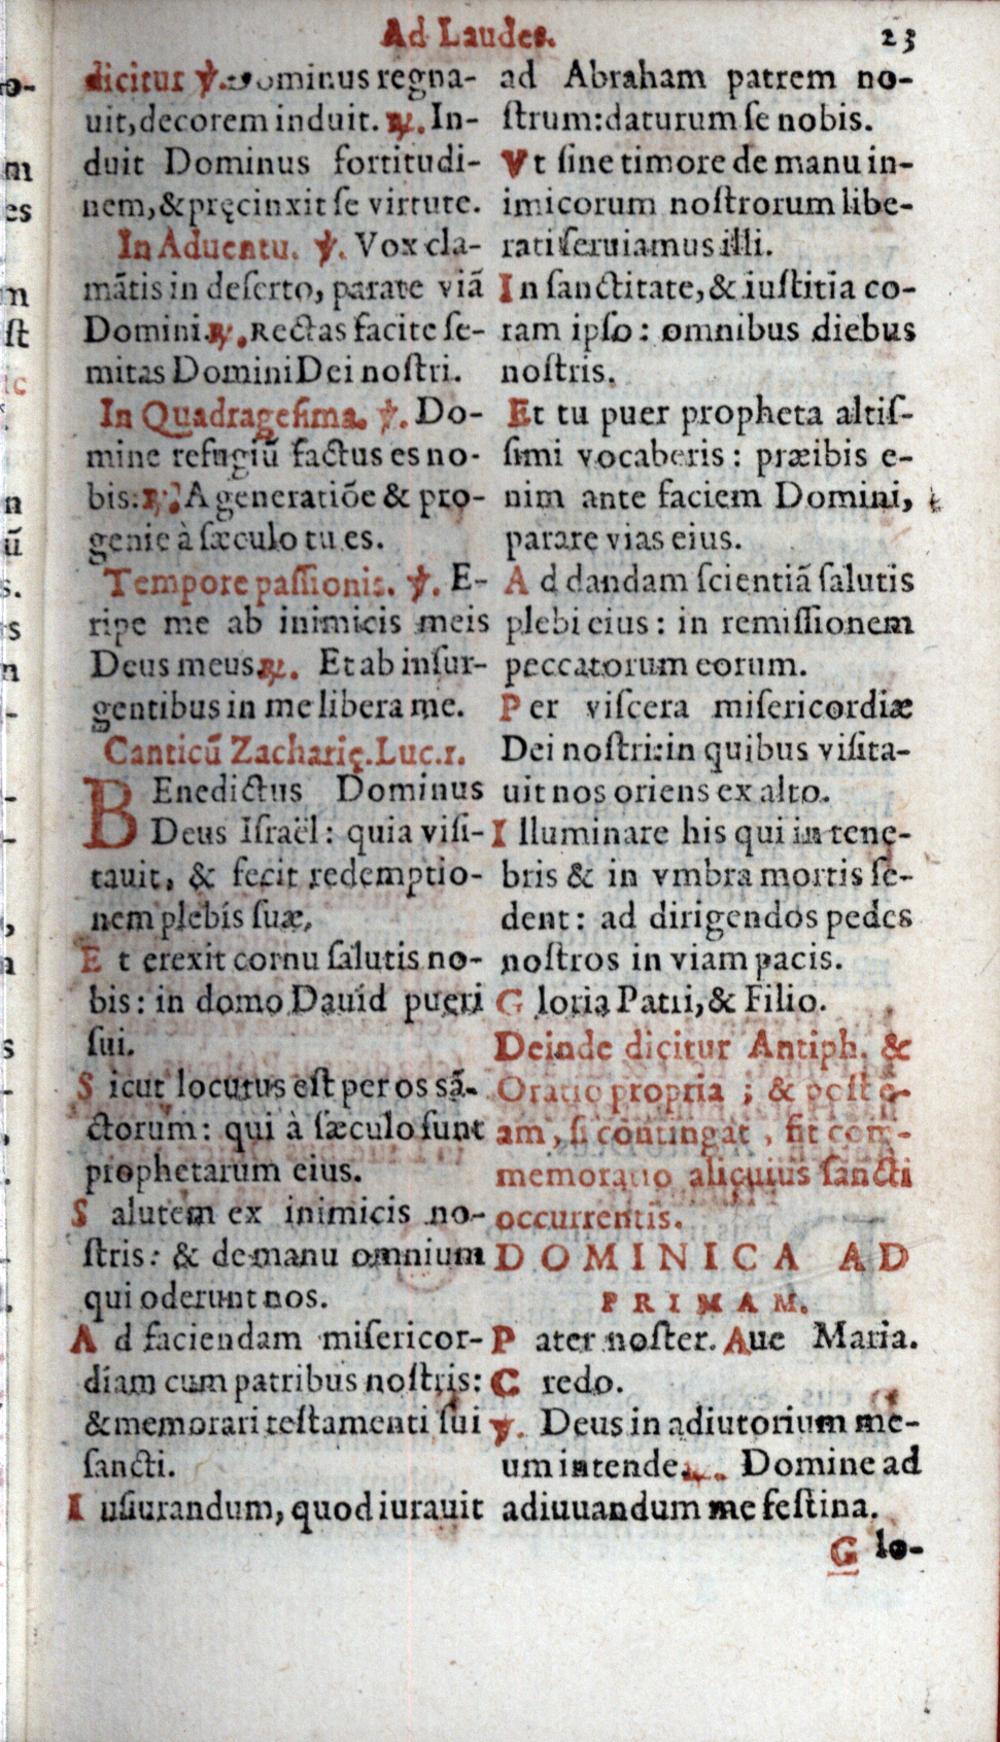 Ad Laudes. 23
dicitur ℣. Dominus regna-
uit, decorem induit. ℟. In-
duit Dominus fortitudi-
nem, & pręcinxit se virtute.
In Aduentu. ℣. Vox cla-
mãtis in deserto, parate viã
Domini. ℟. Rectas facite se-
mitas Domini Dei nostri.
In Quadragesima. ℣. Do-
mine refugiũ factus es no-
bis. ℟. A generatiõe & pro-
genie à sæculo tu es.
Tempore passionis. ℣. E-
ripe me ab inimicis meis
Deus meus. ℟. Et ab insur-
gentibus in me libera me.
Canticũ Zacharię. Luc. 1.
BEnedictus Dominus
Deus Israël: quia visi-
tauit, & fecit redemptio-
nem plebis suæ,
Et erexit cornu salutis no-
bis: in domo Dauid pueri
sui.
Sicut locutus est per os sã-
ctorum: qui à sæculo sunt
prophetarum eius.
Salutem ex inimicis no-
stris: & de manu omnium
qui oderunt nos.
Ad faciendam misericor-
diam cum patribus nostris:
& memorari testamenti sui
sancti.
Iusiurandum, quod iurauit
ad Abraham patrem no-
strum: daturum se nobis.
Vt sine timore de manu in-
imicorum nostrorum libe-
rati seruiamus illi.
In sanctitate, & iustitia co-
ram ipso: omnibus diebus
nostris.
Et tu puer propheta altis-
simi vocaberis: præibis e-
nim ante faciem Domini,
parare vias eius.
Ad dandam scientiã salutis
plebi eius: in remissionem
peccatorum eorum.
Per viscera misericordiæ
Dei nostri: in quibus visita-
uit nos oriens ex alto.
Illuminare his qui in tene-
bris & in vmbra mortis se-
dent: ad dirigendos pedes
nostros in viam pacis.
Gloria Patri, & Filio.
Deinde dicitur Antiph. &
Oratio propria ; & post e-
am, si contingat, fit com-
memoratio alicuius sancti
occurrentis.
DOMINICA AD
PRIMAM.
Pater noster. Aue Maria.
Credo.
℣. Deus in adiutorium me-
um intende. ℟. Domine ad
adiuuandum me festina.
Glo-